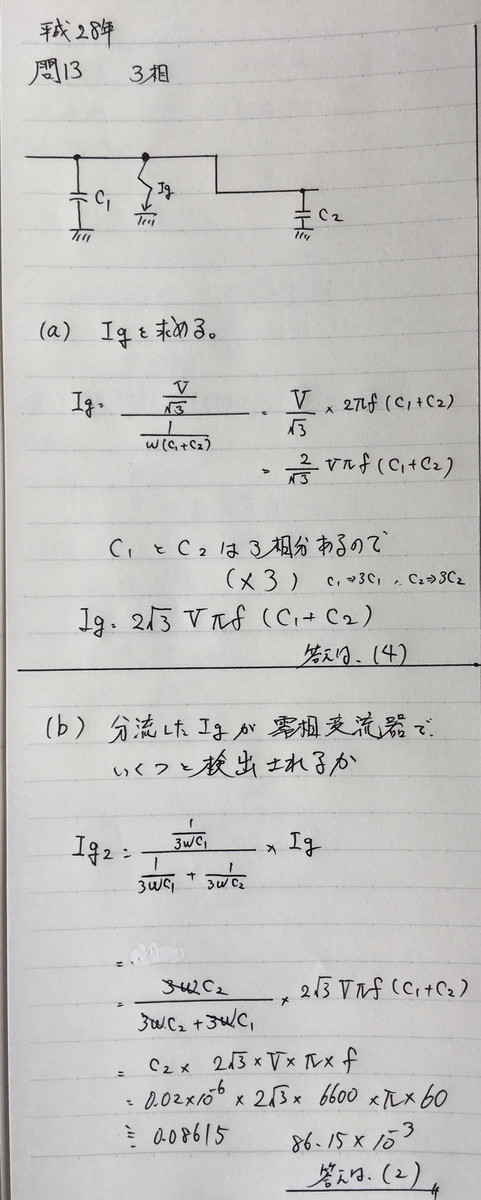 平成28年
問13 3相
C₁ Ig C₂
(a) Igを求める。
Ig = (V/√3) / (1/(ω(C₁+C₂))) = V/√3 × 2πf(C₁+C₂)
= 2/√3 Vπf(C₁+C₂)
C₁とC₂は3相分あるので
(×3) C₁⇒3C₁、C₂⇒3C₂
Ig = 2√3 Vπf (C₁+C₂)
答えは、(4)
(b) 分流したIgが零相変流器で
いくつと検出されるか
Ig₂ = (1/(3ωC₁)) / (1/(3ωC₁) + 1/(3ωC₂)) × Ig
=
= 3ωC₂ / (3ωC₂ + 3ωC₁) × 2√3 Vπf(C₁+C₂)
= C₂ × 2√3 × V × π × f
= 0.02×10⁻⁶ × 2√3 × 6600 × π × 60
≒ 0.08615 86.15×10⁻³
答えは、(2)